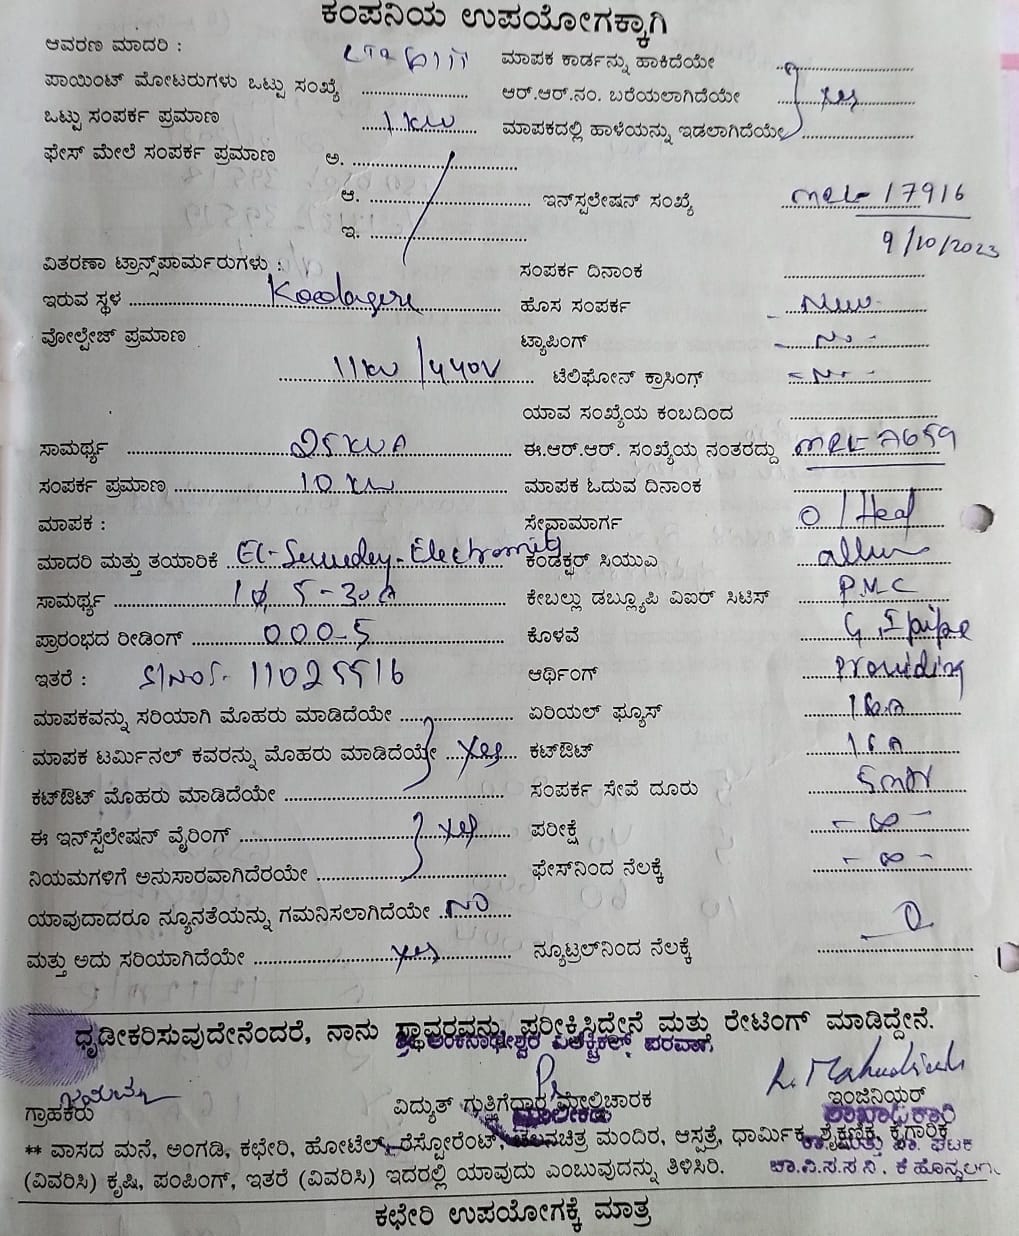 ಕಂಪನಿಯ ಉಪಯೋಗಕ್ಕಾಗಿ
ಆವರಣ ಮಾದರಿ : ಮಾಪಕ ಕಾರ್ಡನ್ನು ಹಾಕಿದೆಯೇ
ಪಾಯಿಂಟ್ ಮೋಟರುಗಳು ಒಟ್ಟು ಸಂಖ್ಯೆ ಆರ್.ಆರ್.ನಂ. ಬರೆಯಲಾಗಿದೆಯೇ yes
ಒಟ್ಟು ಸಂಪರ್ಕ ಪ್ರಮಾಣ 1 kw ಮಾಪಕದಲ್ಲಿ ಹಾಳೆಯನ್ನು ಇಡಲಾಗಿದೆಯೇ
ಫೇಸ್ ಮೇಲೆ ಸಂಪರ್ಕ ಪ್ರಮಾಣ ಅ.
ಆ. ಇನ್‌ಸ್ಪಲೇಷನ್ ಸಂಖ್ಯೆ 17916
ಇ. 9/10/2023
ವಿತರಣಾ ಟ್ರಾನ್ಸ್‌ಪಾರ್ಮರುಗಳು : ಸಂಪರ್ಕ ದಿನಾಂಕ
ಇರುವ ಸ್ಥಳ Koolagere ಹೊಸ ಸಂಪರ್ಕ New
ವೋಲ್ಟೇಜ್ ಪ್ರಮಾಣ ಟ್ಯಾಪಿಂಗ್ - No -
11kv/440V ಟೆಲಿಫೋನ್ ಕ್ರಾಸಿಂಗ್ - No -
ಯಾವ ಸಂಖ್ಯೆಯ ಕಂಬದಿಂದ
ಸಾಮರ್ಥ್ಯ 25 KVA ಈ.ಆರ್.ಆರ್. ಸಂಖ್ಯೆಯ ನಂತರದ್ದು
ಸಂಪರ್ಕ ಪ್ರಮಾಣ 10 kw ಮಾಪಕ ಓದುವ ದಿನಾಂಕ
ಮಾಪಕ : ಸೇವಾಮಾರ್ಗ
ಮಾದರಿ ಮತ್ತು ತಯಾರಿಕೆ ಕಂಡಕ್ಟರ್ ಸಿಯುಎ
ಸಾಮರ್ಥ್ಯ 1ϕ, 5-30A ಕೇಬಲ್ಲು ಡಬ್ಲ್ಯೂಪಿ ವಿಐರ್ ಸಿಟಿಸ್ P.M.C
ಪ್ರಾರಂಭದ ರೀಡಿಂಗ್ 000-5 ಕೊಳವೆ G.I pipe
ಇತರೆ : S/NO5- 11025516 ಆರ್ಥಿಂಗ್ Providing
ಮಾಪಕವನ್ನು ಸರಿಯಾಗಿ ಮೊಹರು ಮಾಡಿದೆಯೇ ಏರಿಯಲ್ ಫ್ಯೂಸ್ 16A
ಮಾಪಕ ಟರ್ಮಿನಲ್ ಕವರನ್ನು ಮೊಹರು ಮಾಡಿದೆಯೇ yes ಕಟ್‌ಔಟ್ 16A
ಕಟ್‌ಔಟ್ ಮೊಹರು ಮಾಡಿದೆಯೇ ಸಂಪರ್ಕ ಸೇವೆ ದೂರು
ಈ ಇನ್‌ಸ್ಪೆಲೇಷನ್ ವೈರಿಂಗ್ yes ಪರೀಕ್ಷೆ - ∞ -
ನಿಯಮಗಳಿಗೆ ಅನುಸಾರವಾಗಿದೆರಯೇ ಫೇಸ್‌ನಿಂದ ನೆಲಕ್ಕೆ - ∞ -
ಯಾವುದಾದರೂ ನ್ಯೂನತೆಯನ್ನು ಗಮನಿಸಲಾಗಿದೆಯೇ NO
ಮತ್ತು ಅದು ಸರಿಯಾಗಿದೆಯೇ yes ನ್ಯೂಟ್ರಲ್‌ನಿಂದ ನೆಲಕ್ಕೆ 0
ಧೃಡೀಕರಿಸುವುದೇನೆಂದರೆ, ನಾನು ಸ್ಥಾವರವನ್ನು ಪರೀಕ್ಷಿಸಿದ್ದೇನೆ ಮತ್ತು ರೇಟಿಂಗ್ ಮಾಡಿದ್ದೇನೆ.
ಗ್ರಾಹಕರು ವಿದ್ಯುತ್ ಗುತ್ತಿಗೆದಾರ ಮೇಲ್ವಿಚಾರಕ ಇಂಜಿನಿಯರ್
ಮಾಲೀಕರು ಶಾಖಾಧಿಕಾರಿ
** ವಾಸದ ಮನೆ, ಅಂಗಡಿ, ಕಛೇರಿ, ಹೋಟೆಲ್, ರೆಸ್ಟೋರೆಂಟ್, ಚಲನಚಿತ್ರ ಮಂದಿರ, ಆಸ್ಪತ್ರೆ, ಧಾರ್ಮಿಕ, ಶೈಕ್ಷಣಿಕ, ಕೈಗಾರಿಕೆ
(ವಿವರಿಸಿ) ಕೃಷಿ, ಪಂಪಿಂಗ್, ಇತರೆ (ವಿವರಿಸಿ) ಇದರಲ್ಲಿ ಯಾವುದು ಎಂಬುವುದನ್ನು ತಿಳಿಸಿರಿ.
ಕಛೇರಿ ಉಪಯೋಗಕ್ಕೆ ಮಾತ್ರ